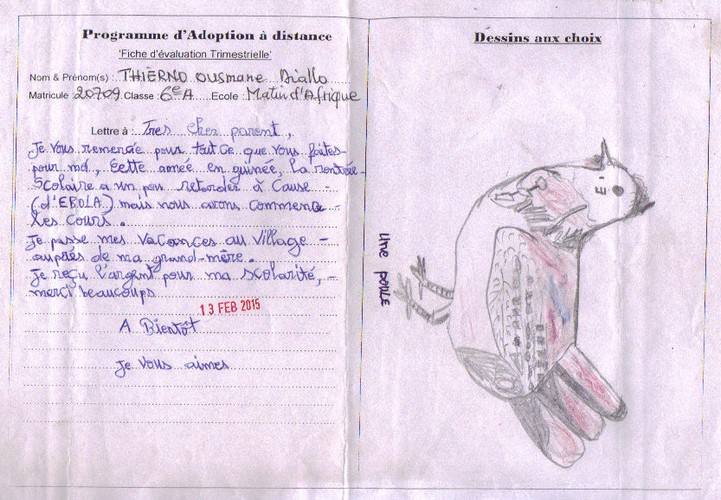 Programme d'Adoption à distance
'Fiche d'évaluation Trimestrielle'
Nom & Prénom(s) : THIERNO Ousmane Diallo
Matricule : 20709 Classe : 6eA Ecole : Matin d'Afrique
Lettre à : Tres cher parent,
Je vous remercie pour tout ce que vous faites
pour moi, Cette année en guinée, la rentrée
scolaire a un peu retarder à cause
(d'EBOLA) mais nous avons commencé
les cours.
Je passe mes vacances au village
auprès de ma grand-mère.
Je reçu l'argent pour ma scolarité,
merci beaucoups
13 FEB 2015
A Bientôt
Je vous aimes
Dessins aux choix
une poule